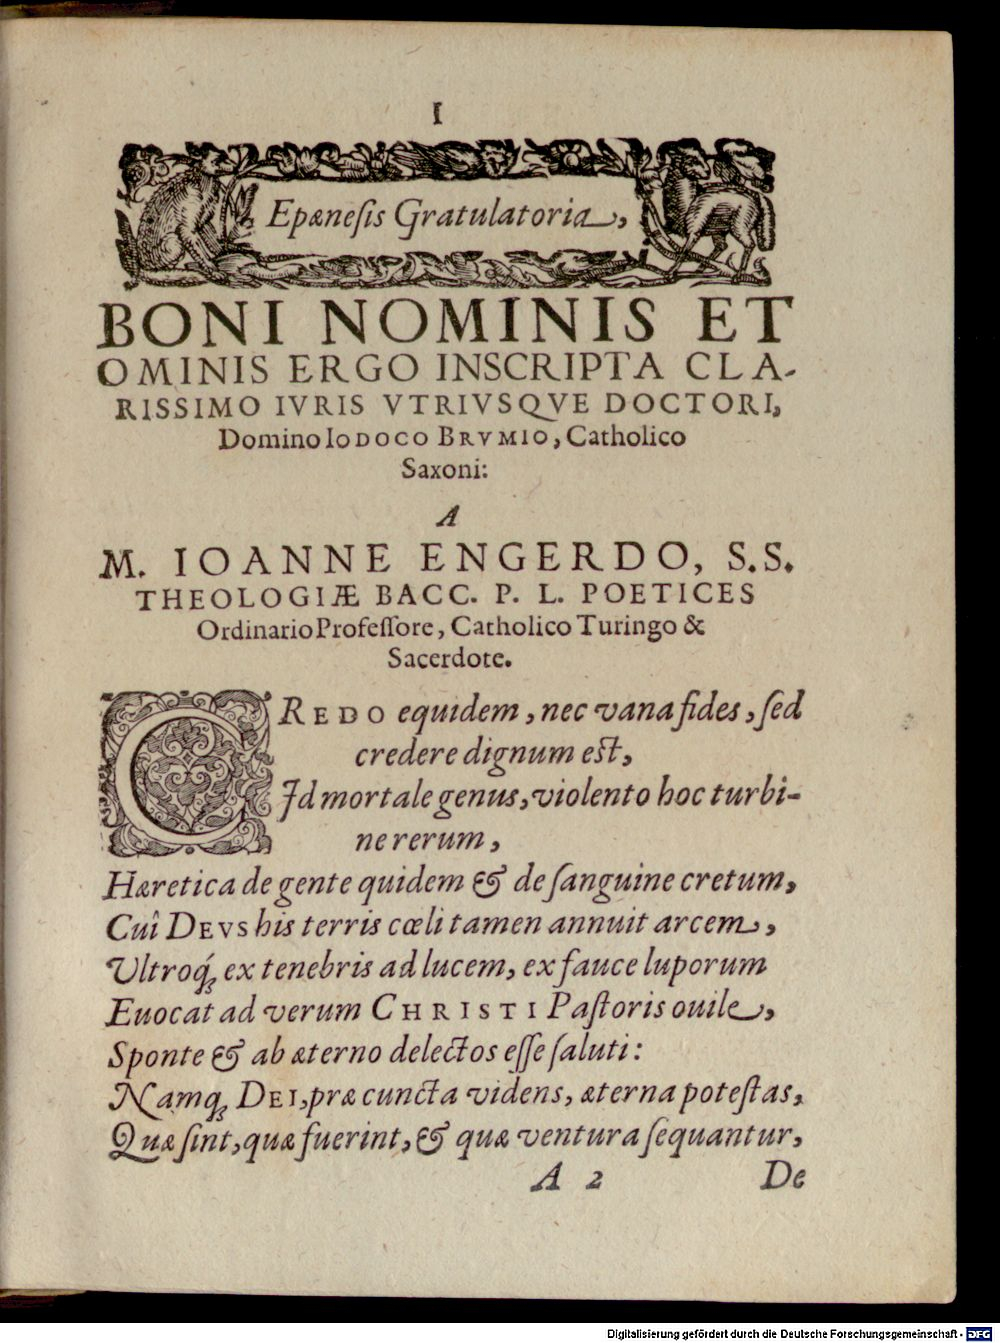 I
Epænesis Gratulatoria,
BONI NOMINIS ET
OMINIS ERGO INSCRIPTA CLA-
RISSIMO IVRIS VTRIVSQVE DOCTORI,
Domino IODOCO BRVMIO, Catholico
Saxoni:
A
M. IOANNE ENGERDO, S.S.
THEOLOGIÆ BACC. P. L. POETICES
Ordinario Profeſſore, Catholico Turingo &
Sacerdote.
CREDO equidem, nec vana fides, ſed
credere dignum eſt,
Id mortale genus, violento hoc turbi-
ne rerum,
Hæretica de gente quidem & de ſanguine cretum,
Cuî DEVS his terris cœli tamen annuit arcem,
Vltroq́ꝫ ex tenebris ad lucem, ex fauce luporum
Euocat ad verum CHRISTI Paſtoris ouile,
Sponte & ab æterno delectos eſſe ſaluti:
Namqꝫ DEI, præ cuncta videns, æterna poteſtas,
Quæ ſint, quæ fuerint, & quæ ventura ſequantur,
A 2 De
Digitalisierung gefördert durch die Deutsche Forschungsgemeinschaft - DFG